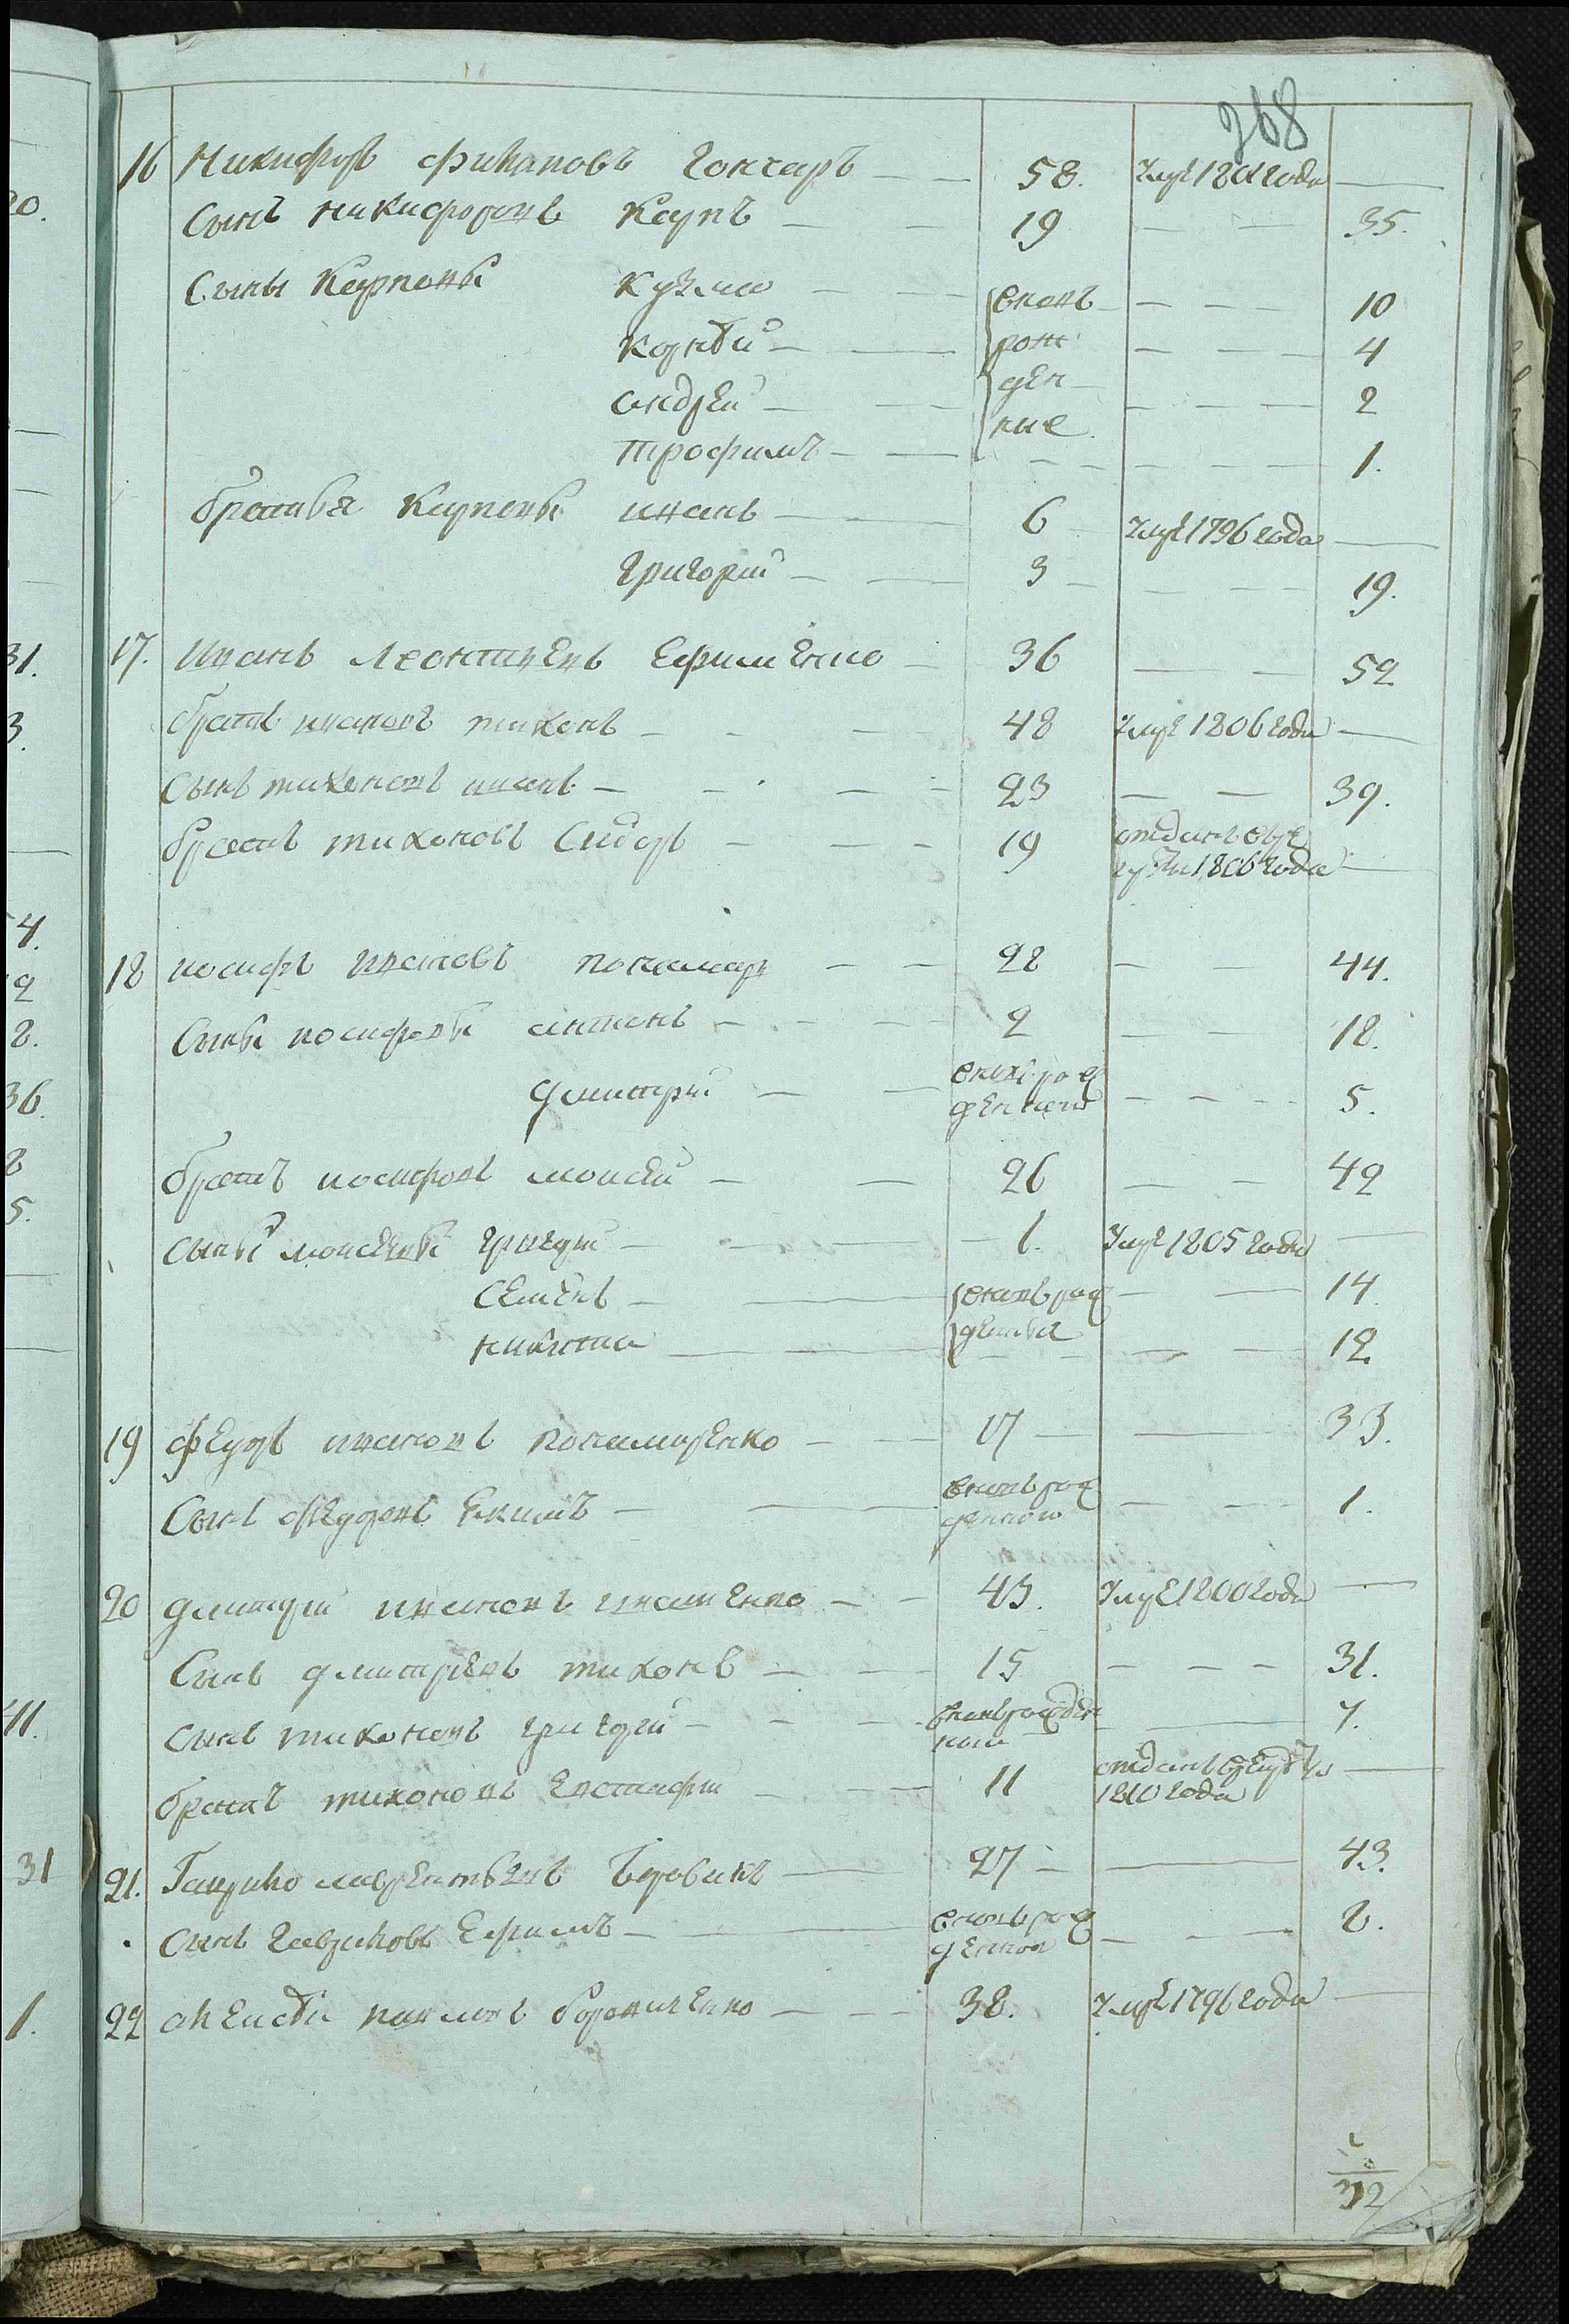 368
16 Никифоръ Филиповъ Гончаръ 58. умре 1801 года
Сынъ Никифоровъ Карпъ 19 35.
Сыны Карповы Кузма вновь 10
Кондтй рож 4
Андрей ден 2
Трофимъ ные 1.
братья Карповы Иванъ 6 умре 1796 года
Григорий 3 19.
17. Иванъ Леонтиевъ Ефименко 36 52
братъ Ивановъ Тихонъ 48 умре 1806 года
Сынъ Тихоновъ Иванъ 23 39.
братъ Тихоновъ Сидоръ 19 отданъ врекруты 1806 года
18 Иосифъ Ивановъ Понамарь 28 44.
Сыны Иосифовы Антонъ 2 18.
Дмитрий вновь рож
денный 5.
братъ Иосифовъ Моисей 26 42
Сыны Моисеевы Григорий 1. умре 1805 года
Семенъ вновь рож 14
Никита денныя 12
19 Федоръ Ивановъ Понамаренко 17 33.
Сынъ Федоровъ Екимъ вновь рож
денной 1.
20 Дмитрий Ивановъ Иващенко 45. умре 1800 года
Сынъ Дмитриевъ Тихонъ 15 31.
Сынъ Тихоновъ Григорий вновь рожден
ный 7.
братъ Тихоновъ Евстафий 11 отданъ врекруты
1810 года
21. Гаврило Лаврентьевъ Боровикъ 27 43.
Сынъ Гавриловъ Ефимъ вновь рож
денной 8.
22 Алексей Павловъ Боровиченко 38. умре 1796 года